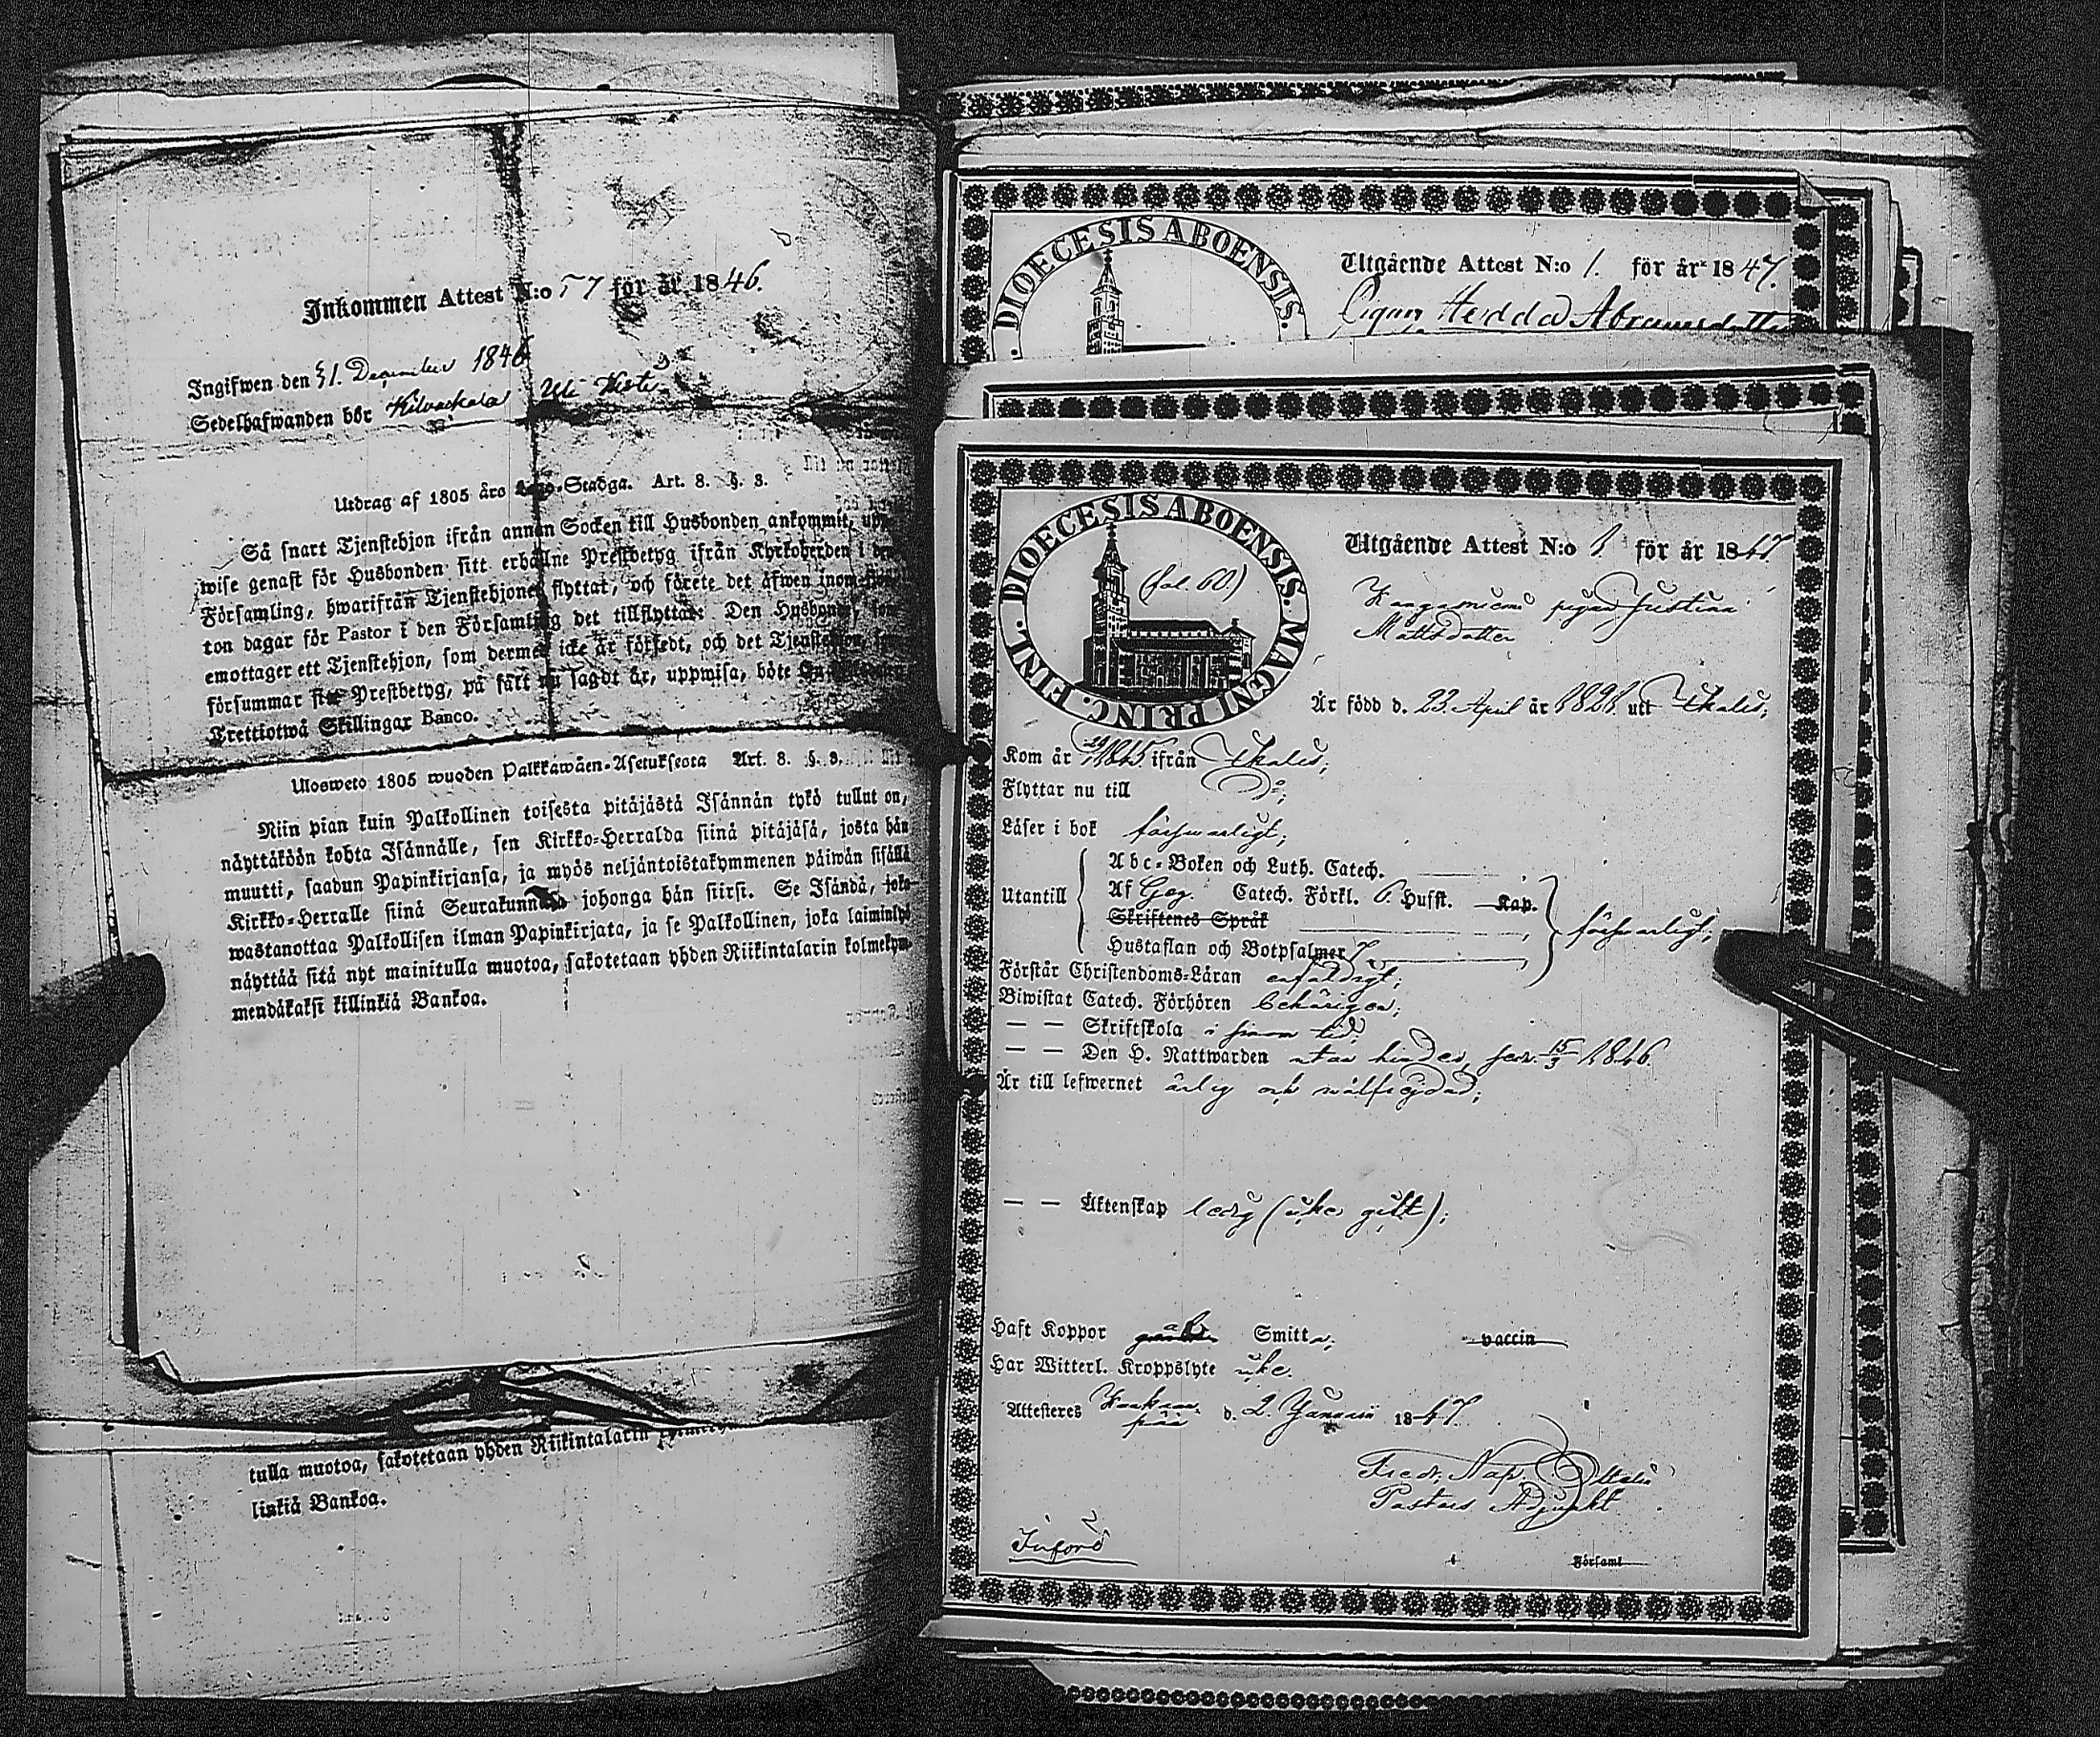 Inkommen Attest N:o 57 för år 1846.
Ingifwen den 31. December 1846
Sedelhafwanden bör
Utdrag af 1805 års Lego-Stadga. Art. 8. §. 3.
Så snart Tjenstehjon ifrån annan Socken till Husbonden ankommit, upp-
wise genast för Husbonden sitt erhållne Prestbetyg ifrån Kyrkoherden i den
Församling, hwarifrån Tjenstehjonet flyttat, och förete det äfwen inom
ton dagar för Pastor i den Församling det tillflyttat: Den Husbonde, som
emottager ett Tjenstehjon, som dermed icke är försedt, och det Tjenstehjon, som
försummar sitt Prestbetyg, på sätt nu sagdt är, uppwisa, böte En
Trettiotwå Skillingar Banco.
Ulosweto 1805 wuoden Palkkawäen-Asetuksesta Art. 8. §. 3.
Niin pian kuin Palkollinen toisesta pitäjästä Isännän tykö tullut on,
näyttäköön kohta Isännälle, sen Kirkko-Herralda siinä pitäjäsä, josta hän
muutti, saadun Papinkirjansa, ja myös neljäntoistakymmenen päiwän sisällä
Kirkko-Herralle siinä Seurakunnasa johonga hän siirsi. Se Isändä, joka
wastanottaa Palkollisen ilman Papinkirjata, ja se Palkollinen, joka laiminlyö
näyttää sitä nyt mainitulla muotoa, sakotetaan yhden Riikintalarin kolmekym-
mendäkaksi killinkiä Bankoa.
tulla muotoa, sakotetaan yhden Riikintalarin
linkiä Bankoa.
DIOECESIS ABOENSIS.
Utgående Attest N:o 1. för år 1847.
Pigan Hedda Abramsdotter
DIOECESIS ABOENSIS. MAGNI PRINC. FINL.
(fol. 60)
Utgående Attest N:o 1 för år 1847.
pigan Justina
Mattsdotter
Är född d. 23. April år 1821. utt Ikalis;
Kom år 1845 ifrån Ikalis;
Flyttar nu till Do;
Läser i bok försvarligt;
Utantill
Abc-Boken och Luth. Catech.
Af Catech. Förkl. Hufst. Kap.
Skriftenes Språk
Hustaflan och Botpsalmer 7
försvarligt;
Förstår Christendoms-Läran enfaldigt;
Biwistat Catech. Förhören behörigen;
— — Skriftskola i sinom tid;
— — Den H. Nattwarden utan hinder, sedn. 15/3 1846.
Är till lefwernet ärlig och wälfrejdad;
— — Äktenskap ledig (icke gift);
Haft Koppor Smitt
vaccin
Har Witterl. Kroppslyte icke.
Attesteres d. 2. Januarii 1847.
Fredr. Nap.
Pastors Adjunkt
Införd
i Församl